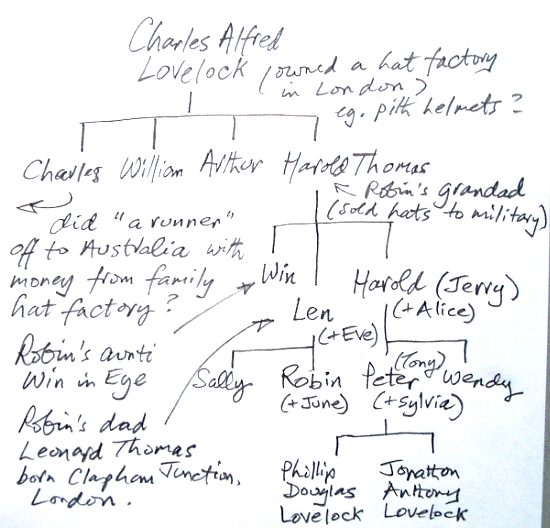 Charles Alfred
Lovelock (owned a hat factory
in London)
eg. pith helmets?
Charles William Arthur Harold Thomas
Robin's grandad
(sold hats to military)
did "a runner"
off to Australia with
money from family
hat factory?
Win
Harold (Jerry)
(+Alice)
Len
(+Eve)
Robin's aunti
Win in Eye
Sally
Robin
(+June)
(Tony)
Peter
(+Sylvia)
Wendy
Robin's dad
Leonard Thomas
born Clapham Junction,
London.
Phillip
Douglas
Lovelock
Jonatton
Anttony
Lovelock